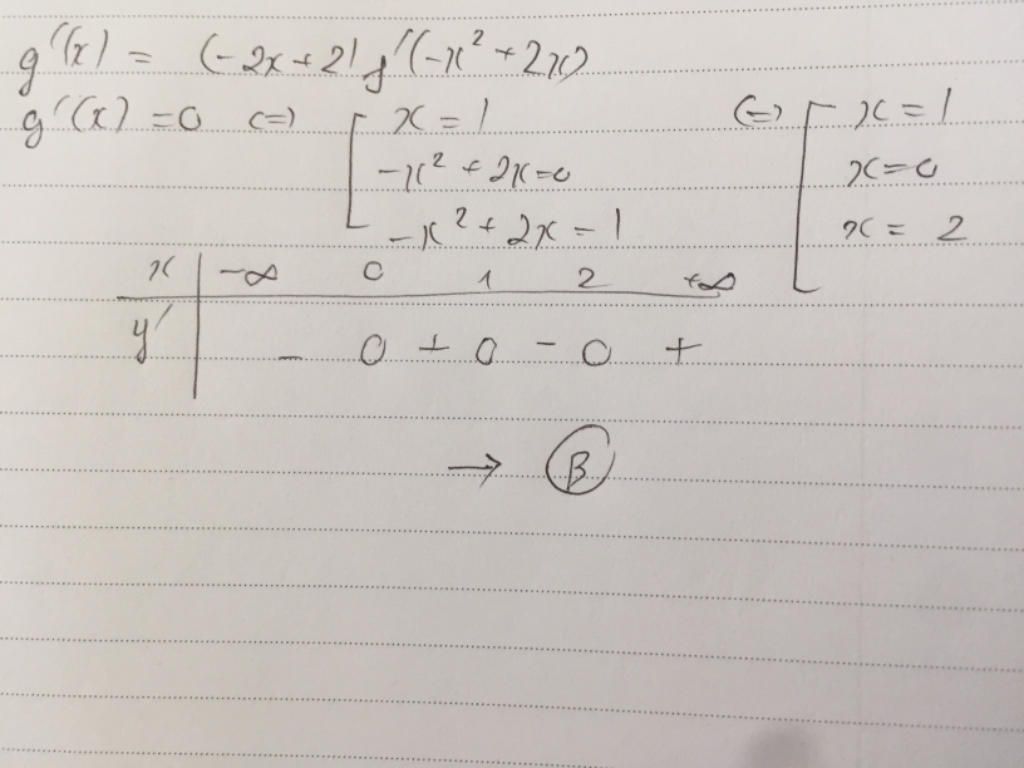 g'(x) = (-2x+2) f'(-x² + 2x)
g'(x) = 0 <=> [ x = 1 <=> [ x = 1
-x² + 2x = 0 x = 0
-x² + 2x = 1 x = 2
x | -∞ 0 1 2 +∞
y' | - 0 + 0 - 0 +
→ B